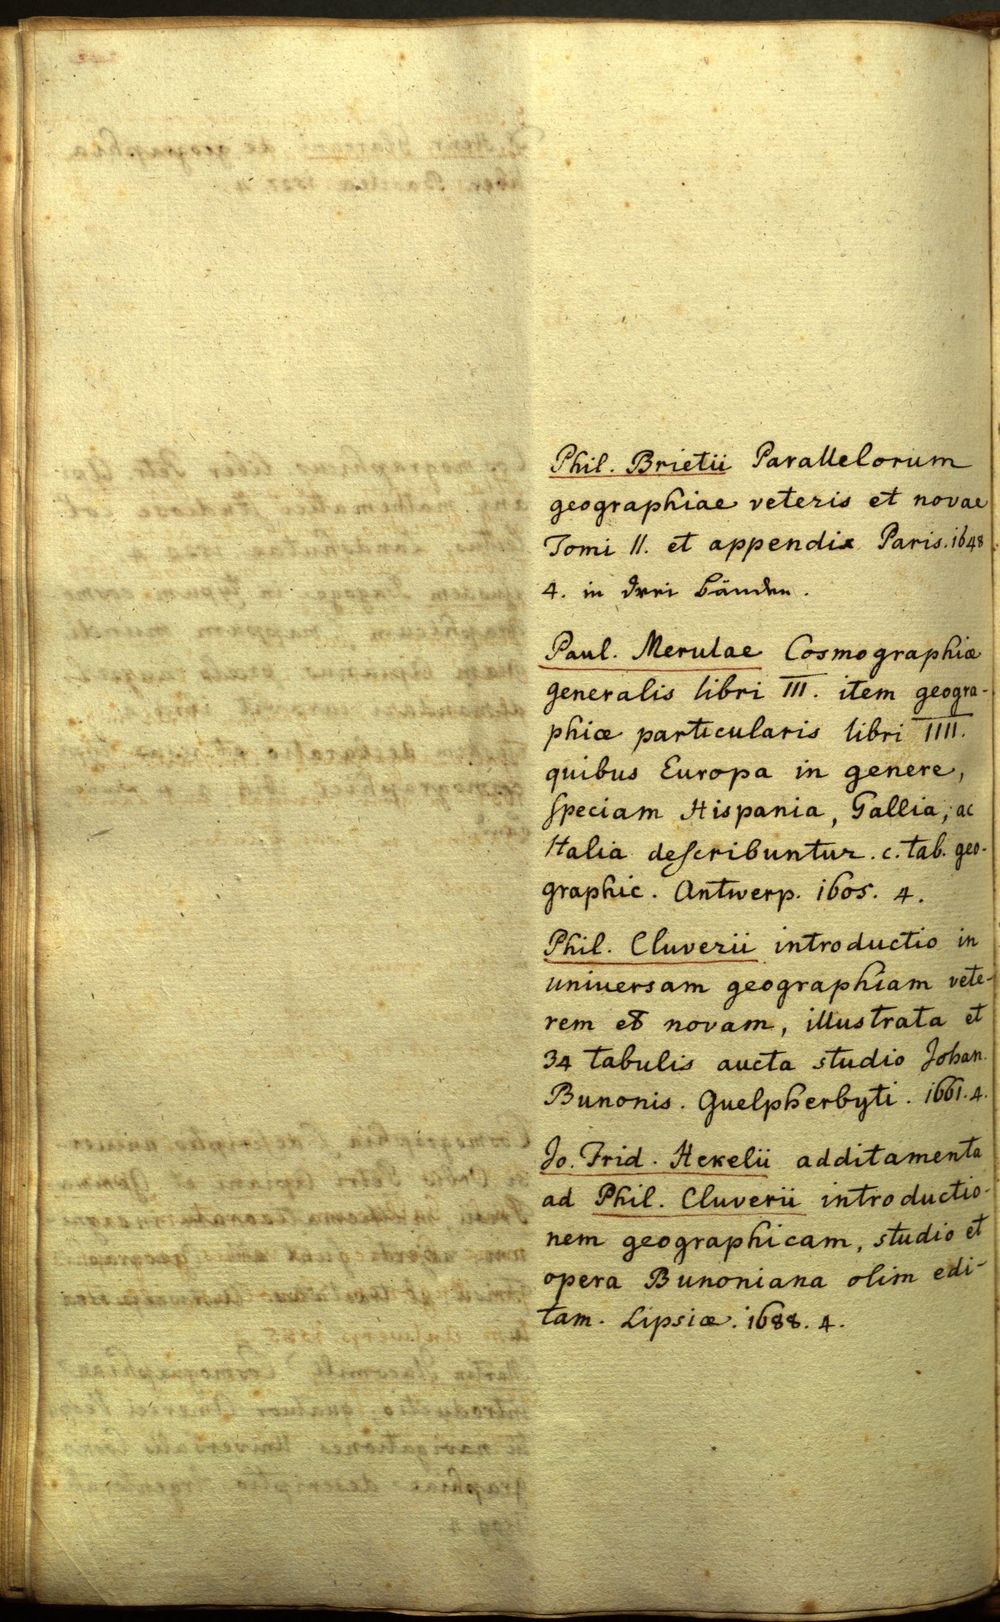 Phil. Brietii Parallelorum
geographiae veteris et novae
Tomi II. et appendix Paris. 1648
4. in drei Bänden.
Paul. Merulae Cosmographiæ
generalis libri III. item geogra-
phiæ particularis libri IIII.
quibus Europa in genere,
speciam Hispania, Gallia, ac
Italia describuntur. c. tab. geo-
graphic. Antwerp. 1605. 4.
Phil. Cluverii introductio in
universam geographiam vete-
rem et novam, illustrata et
34 tabulis aucta studio Johan.
Bunonis. Guelpherbyti. 1661. 4.
Jo. Frid. Hekelii additamenta
ad Phil. Cluverii introductio-
nem geographicam, studio et
opera Bunoniana olim edi-
tam. Lipsiæ. 1688. 4.